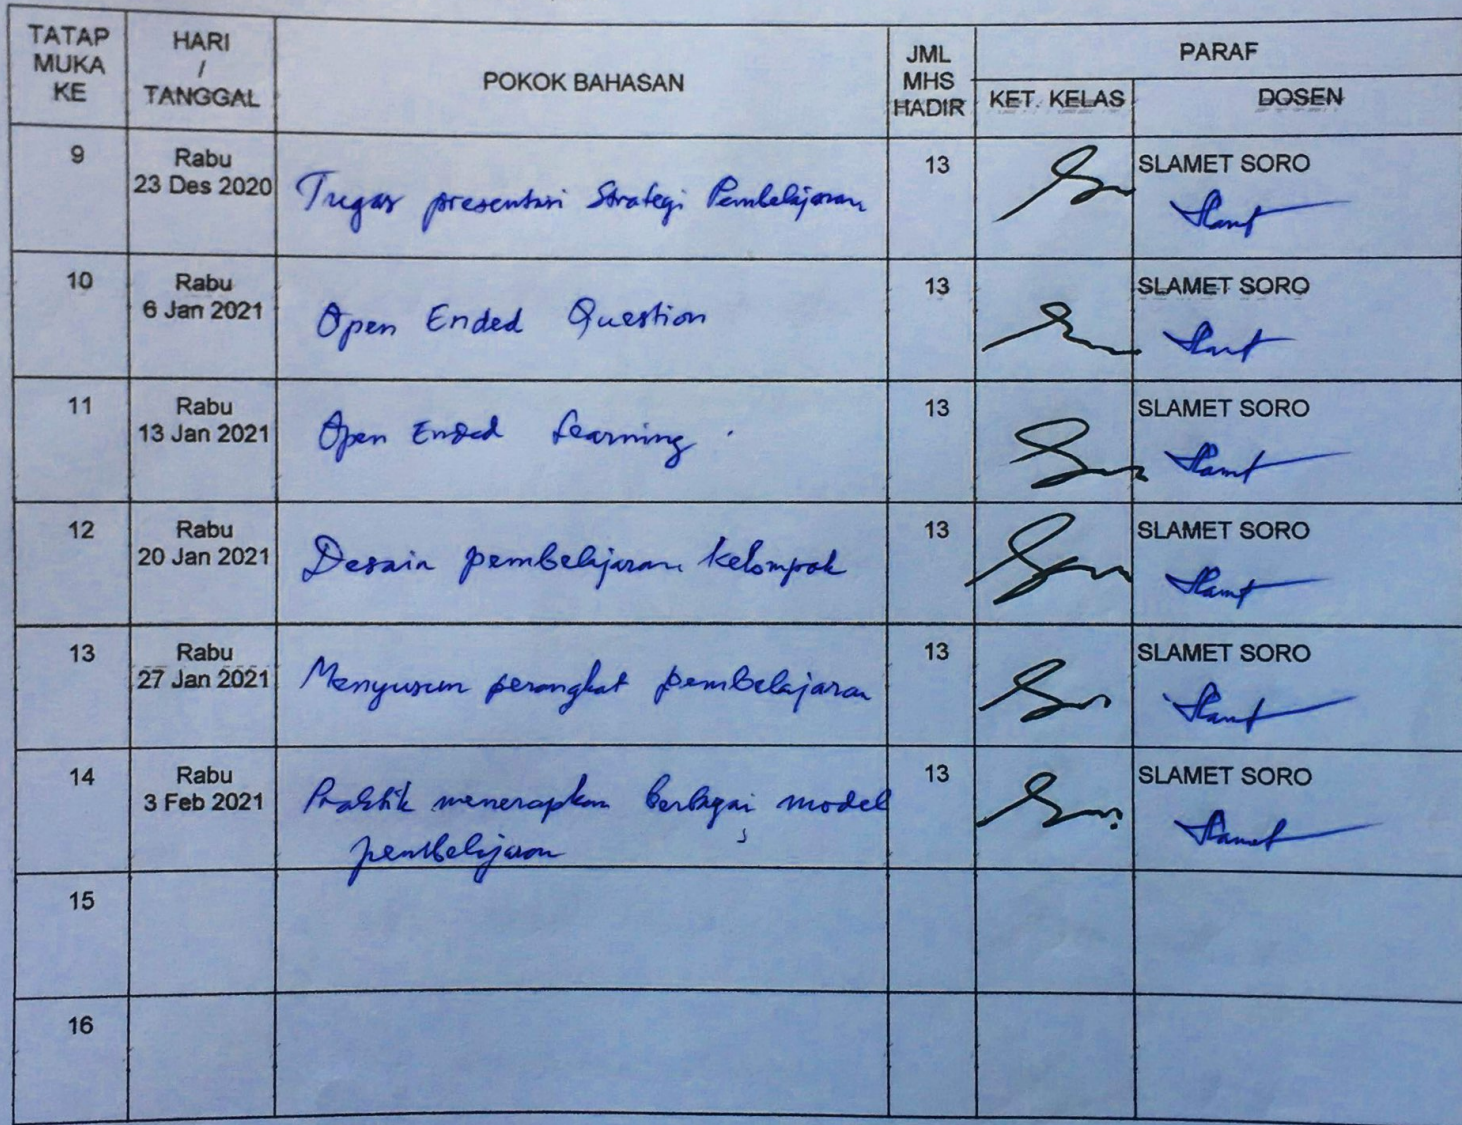 TATAP MUKA KE
HARI / TANGGAL
POKOK BAHASAN
JML MHS HADIR
PARAF
KET. KELAS
DOSEN
9
Rabu
23 Des 2020
Tugas presentasi Strategi Pembelajaran
13
SLAMET SORO
Slamet
10
Rabu
6 Jan 2021
Open Ended Question
13
SLAMET SORO
Slamet
11
Rabu
13 Jan 2021
Open Ended Learning
13
SLAMET SORO
Slamet
12
Rabu
20 Jan 2021
Desain pembelajaran kelompok
13
SLAMET SORO
Slamet
13
Rabu
27 Jan 2021
Menyusun perangkat pembelajaran
13
SLAMET SORO
Slamet
14
Rabu
3 Feb 2021
Praktik menerapkan berbagai model
pembelajaran
13
SLAMET SORO
Slamet
15
16